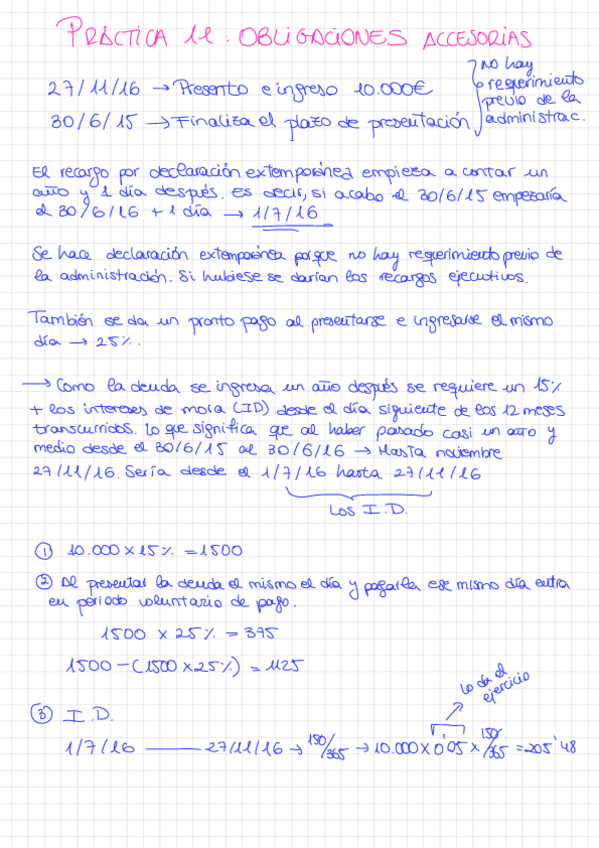 PRÁCTICA 11: OBLIGACIONES ACCESORIAS
27/11/16 → Presento e ingreso 10.000€
30/6/15 → Finaliza el plazo de presentación
no hay
requerimiento
previo de la
administrac.
El recargo por declaración extemporánea empieza a contar un
año y 1 día después. Es decir, si acabo el 30/6/15 empezaría
el 30/6/16 + 1 día → 1/7/16
Se hace declaración extemporánea porque no hay requerimiento previo de
la administración. Si hubiese se darían los recargos ejecutivos.
También se da un pronto pago al presentarse e ingresarse el mismo
día → 25%.
→ Como la deuda se ingresa un año después se requiere un 15%
+ los intereses de mora (ID) desde el día siguiente de los 12 meses
transcurridos. Lo que significa que al haber pasado casi un año y
medio desde el 30/6/15 al 30/6/16 → Hasta noviembre
27/11/16. Sería desde el 1/7/16 hasta 27/11/16
Los I.D.
① 10.000 × 15% = 1500
② Al presentar la deuda el mismo el día y pagarla ese mismo día entra
en periodo voluntario de pago.
1500 × 25% = 375
1500 - (1500 × 25%) = 1125
lo da el
ejercicio
③ I.D.
1/7/16 — 27/11/16 → 150/365 → 10.000 × 0'05 × 150/365 = 205'48